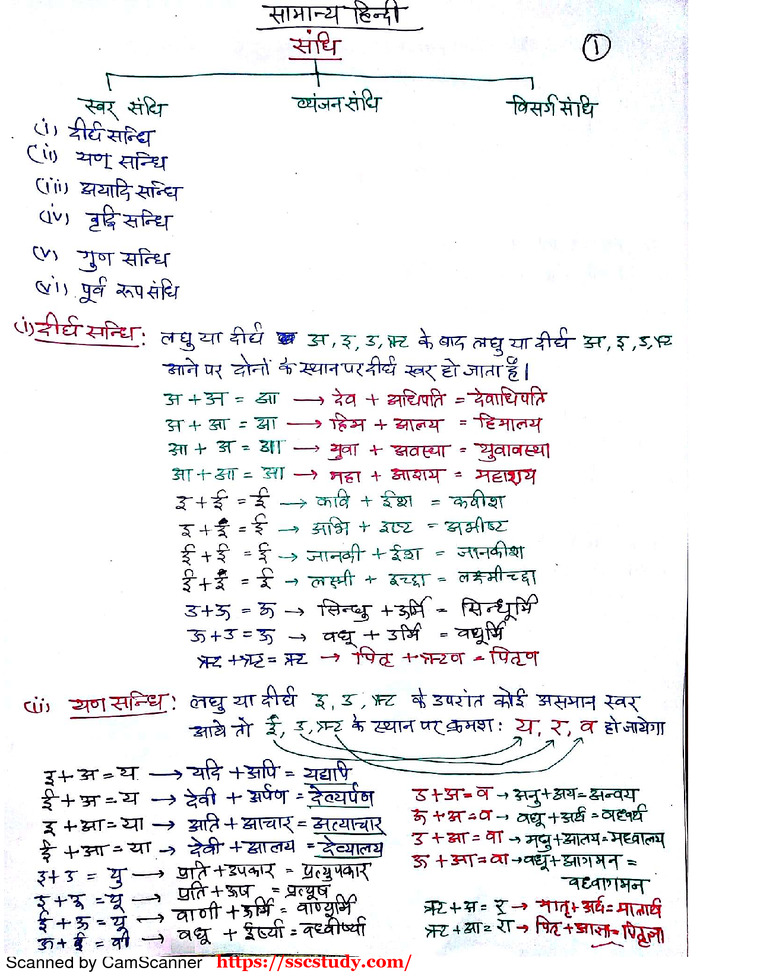 सामान्य हिन्दी
संधि
1
स्वर संधि व्यंजन संधि विसर्ग संधि
(i) दीर्घ सन्धि
(ii) यण् सन्धि
(iii) अयादि सन्धि
(iv) वृद्धि सन्धि
(v) गुण सन्धि
(vi) पूर्व रूप संधि
(i) दीर्घ सन्धि: लघु या दीर्घ अ, इ, उ, ऋ के बाद लघु या दीर्घ अ, इ, उ, ऋ
आने पर दोनों के स्थान पर दीर्घ स्वर हो जाता है।
अ + अ = आ → देव + अधिपति = देवाधिपति
अ + आ = आ → हिम + आलय = हिमालय
आ + अ = आ → युवा + अवस्था = युवावस्था
आ + आ = आ → महा + आशय = महाशय
इ + ई = ई → कवि + ईश = कवीश
इ + इ = ई → अभि + इष्ट = अभीष्ट
ई + ई = ई → जानकी + ईश = जानकीश
ई + इ = ई → लक्ष्मी + इच्छा = लक्ष्मीच्छा
उ + ऊ = ऊ → सिन्धु + ऊर्मि = सिन्धूर्मि
ऊ + उ = ऊ → वधू + उर्मि = वधूर्मि
ऋ + ऋ = ऋ → पितृ + ऋण = पितृण
(ii) यण सन्धि: लघु या दीर्घ इ, उ, ऋ के उपरांत कोई असमान स्वर
आये तो ई, उ, ऋ के स्थान पर क्रमश: य, र, व हो जायेगा
इ + अ = य → यदि + अपि = यद्यपि
ई + अ = य → देवी + अर्पण = देव्यर्पण
इ + आ = या → अति + आचार = अत्याचार
ई + आ = या → देवी + आलय = देव्यालय
इ + उ = यु → प्रति + उपकार = प्रत्युपकार
इ + ऊ = यू → प्रति + ऊष = प्रत्यूष
ई + ऊ = यू → वाणी + ऊर्मि = वाण्यूर्मि
ऊ + ई = वी → वधू + ईर्ष्या = वध्वीर्ष्या
उ + अ = व → अनु + अय = अन्वय
ऊ + अ = व → वधू + अर्थ = वध्वर्थ
उ + आ = वा → मधु + आलय = मध्वालय
ऊ + आ = वा → वधू + आगमन =
वध्वागमन
ऋ + अ = र → मातृ + अर्थ = मात्रार्थ
ऋ + आ = रा → पितृ + आज्ञा =
Scanned by CamScanner https://sscstudy.com/